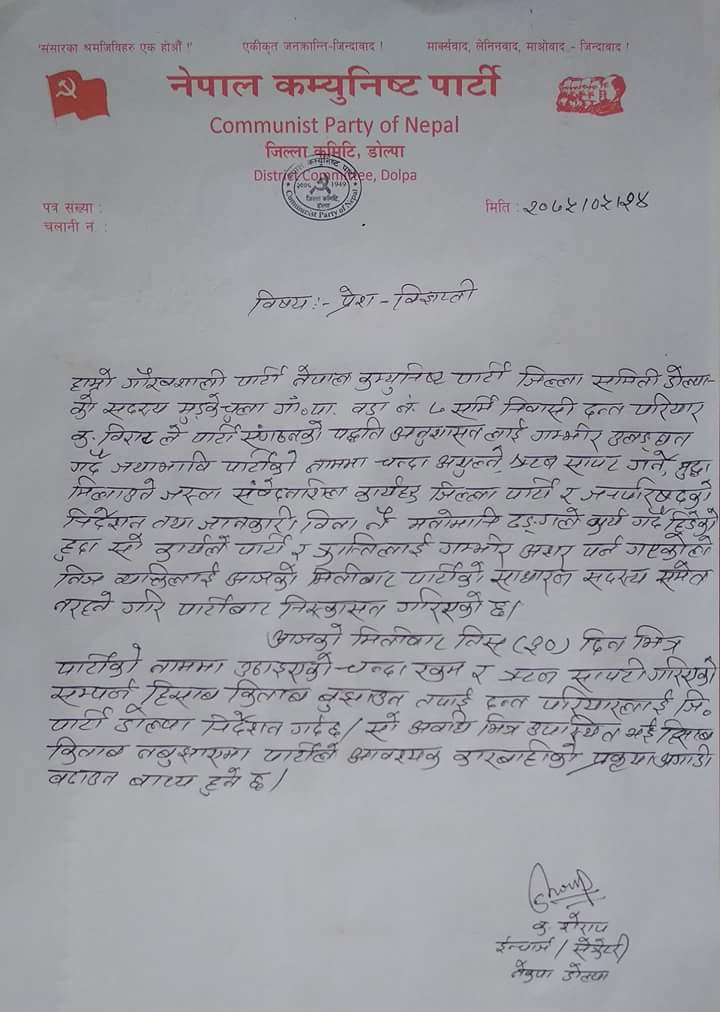 'संसारका श्रमजिविहरु एक होऔं !' एकीकृत जनक्रान्ति-जिन्दावाद ! मार्क्सवाद, लेनिनवाद, माओवाद - जिन्दावाद !
नेपाल कम्युनिष्ट पार्टी
Communist Party of Nepal
जिल्ला कमिटि, डोल्पा
District Committee, Dolpa
नेपाल कम्युनिष्ट पार्टी
२००६ 1949
जिल्ला कमिटी
डोल्पा
Communist Party of Nepal
पत्र संख्या :
मिति : २०७५/०५/२४
चलानी नं :
विषय :- प्रेश - विज्ञप्ती
हाम्रो गौरवशाली पार्टी नेपाल कम्युनिष्ट पार्टी जिल्ला समिती डोल्पा-
को सदस्य मुड्केचुला गाँ.पा. वडा नं. ७ सर्मि निवासी दन्त परियार
क. विराट ले पार्टी संगठनको पद्धति अनुशासन लाई गम्भीर उलङ्घन
गर्दै जथाभावि पार्टीको नाममा चन्दा असुल्ने, ऋण सापट गर्ने, मुद्धा
मिलाउने जस्ता संवेदनशिल कार्यहरु जिल्ला पार्टी र जनपरिषदको
निर्देशन तथा जानकारी विना नै मनोमानि ढङ्गले कार्य गर्दै हिडेको
हुदा सो कार्यले पार्टी र क्रान्तिलाई गम्भीर असर पर्न गएकोले
निज व्यक्तिलाई आजको मितीबाट पार्टीको साधारण सदस्य समेत
नरहने गरि पार्टीबाट निस्कासन गरिएको छ।
आजको मितीबाट तिस (३०) दिन भित्र
पार्टीको नाममा उठाइएको चन्दा रकम र ऋण सापटी गरिएको
सम्पूर्ण हिसाब किताब बुझाउन तपाई दन्त परियारलाई जि.
पार्टी डोल्पा निर्देशन गर्दछ। सो अवधि भित्र उपस्थित भई हिसाब
किताब नबुझाएमा पार्टीले आवश्यक कारबाहीको प्रकृया अगाडी
बढाउन बाध्य हुने छ।
क. शेराप
ईन्चार्ज / सेक्रेटरी
नेकपा डोल्पा